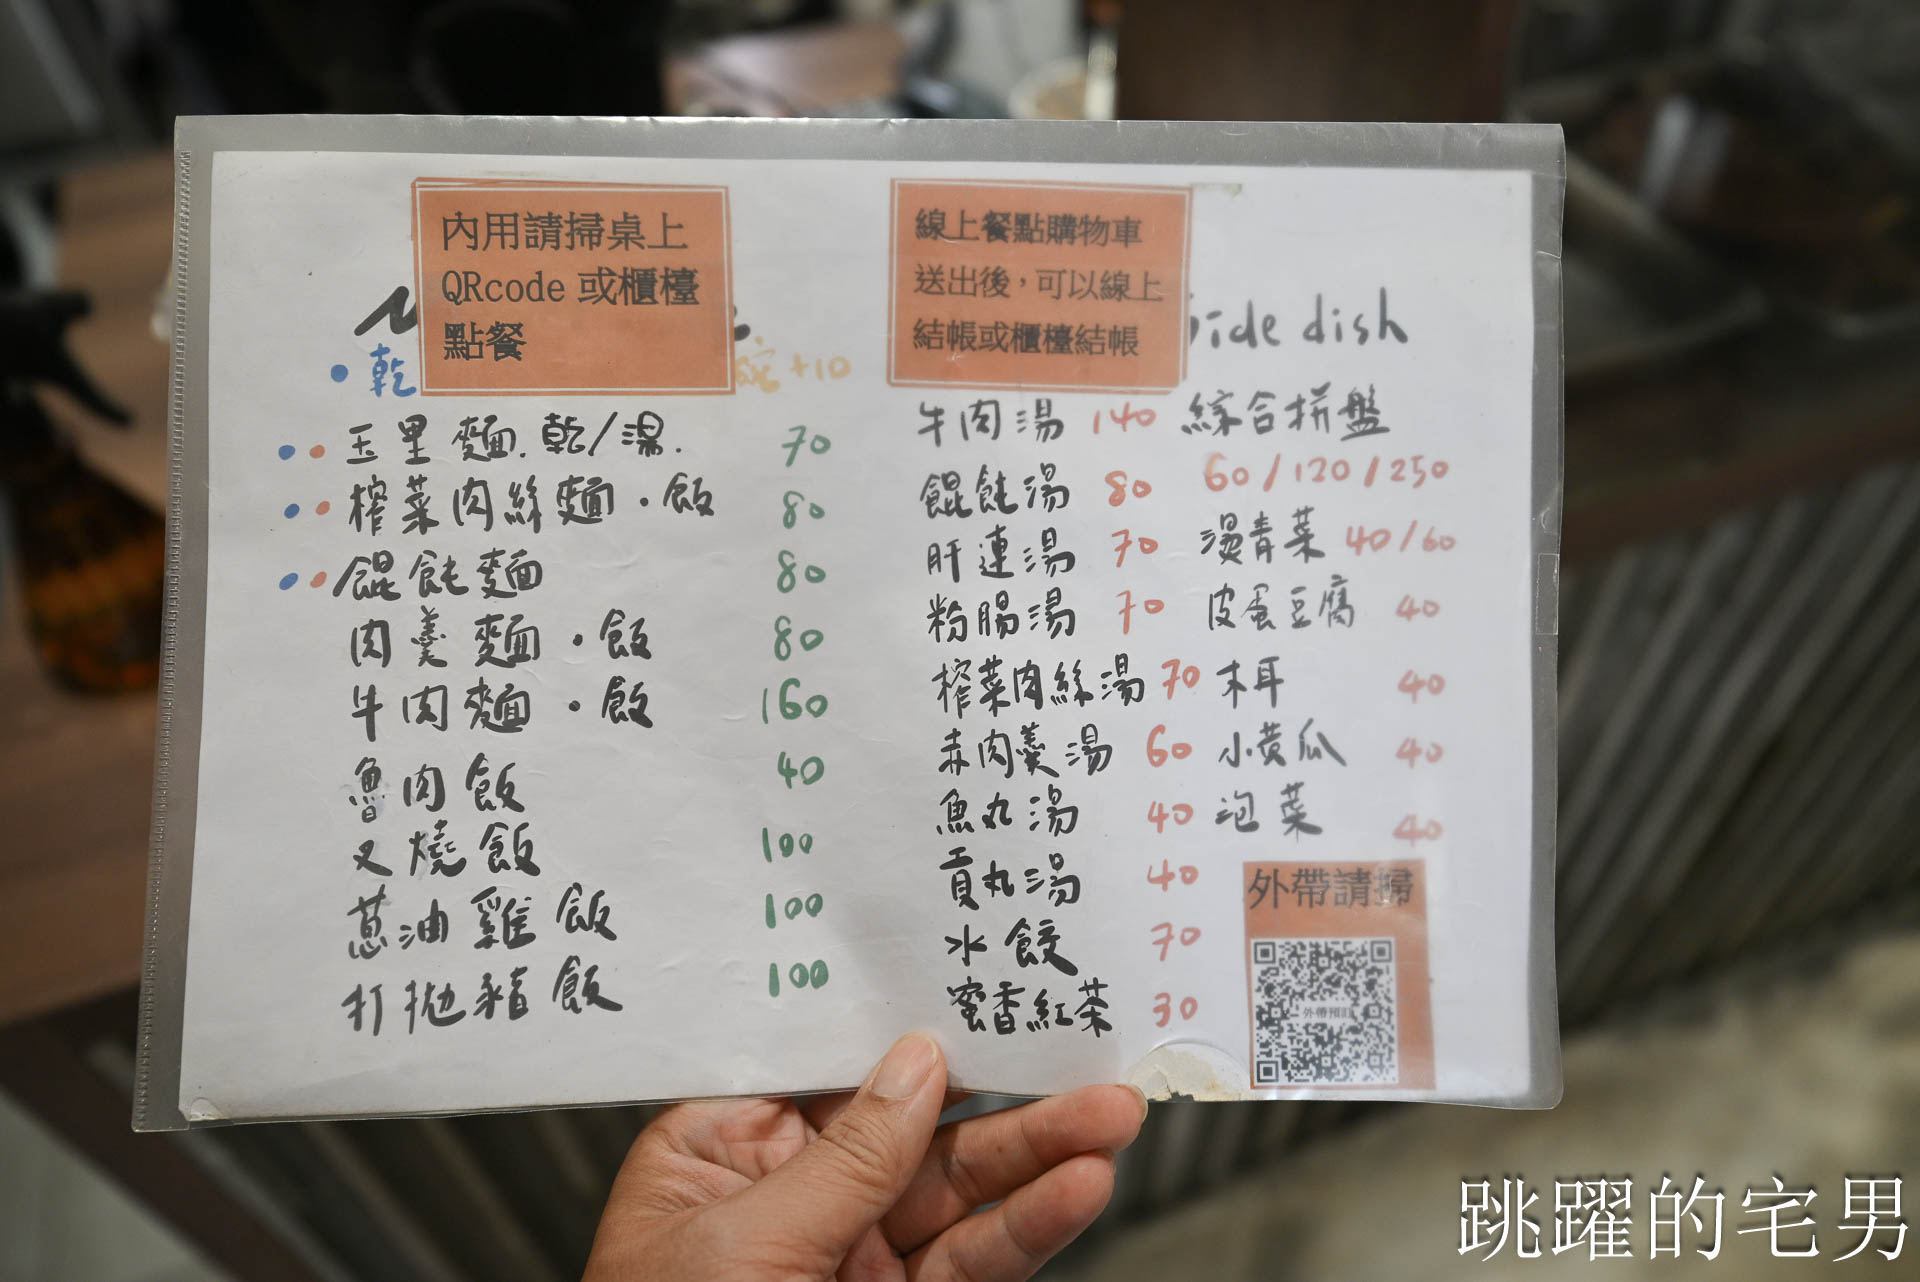 內用請掃桌上
QRcode 或櫃檯
點餐
線上餐點購物車
送出後，可以線上
結帳或櫃檯結帳
side dish
乾
碗 +10
玉里麵.乾/湯. 70
榨菜肉絲麵・飯 80
餛飩麵 80
肉羹麵・飯 80
牛肉麵・飯 160
魯肉飯 40
叉燒飯 100
蔥油雞飯 100
打拋豬飯 100
牛肉湯 140
餛飩湯 80
肝連湯 70
粉腸湯 70
榨菜肉絲湯 70
赤肉羹湯 60
魚丸湯 40
貢丸湯 40
水餃 70
蜜香紅茶 30
綜合拼盤
60/120/250
燙青菜 40/60
皮蛋豆腐 40
木耳 40
小黃瓜 40
泡菜 40
外帶請掃
外帶預訂
跳躍的宅男